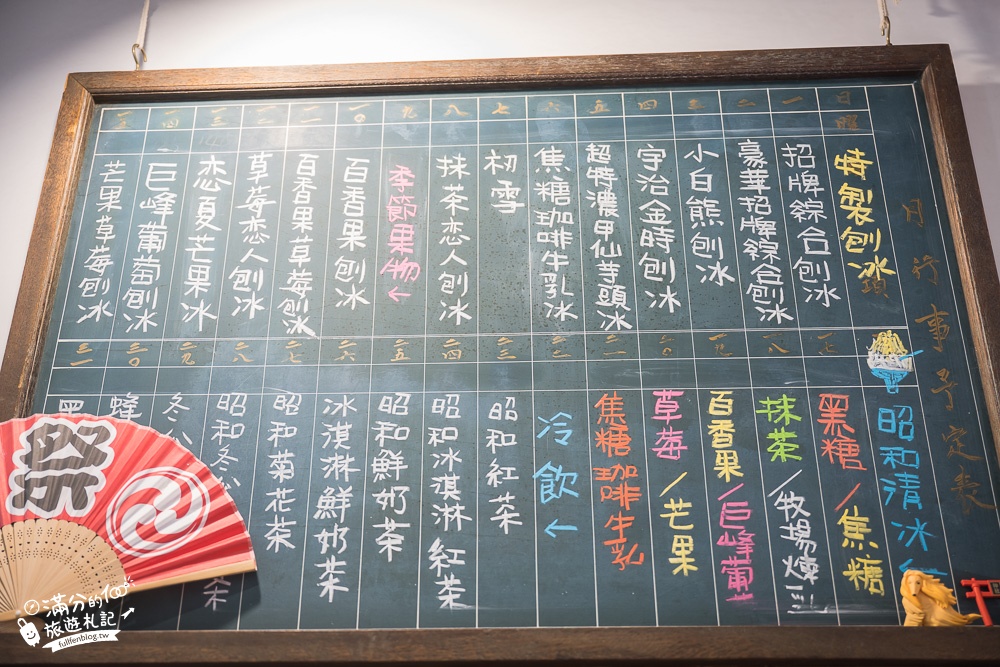 日行事予定表
日曜
一
二
三
四
五
六
七
八
九
一〇
一一
一二
一三
一四
一五
特製刨冰類
招牌綜合刨冰
豪華招牌綜合刨冰
小白熊刨冰
宇治金時刨冰
超特濃甲仙芋頭冰
焦糖珈啡牛乳冰
初雪
抹茶恋人刨冰
季節果物←
百香果刨冰
百香果草莓刨冰
草莓恋人刨冰
恋夏芒果冰
巨峰葡萄刨冰
芒果草莓刨冰
一七
一八
一九
二〇
二一
二二
二三
二四
二五
二六
二七
二八
二九
三〇
三一
昭和清冰
黑糖/焦糖
抹茶/牧場煉
百香果/巨峰葡
草莓/芒果
焦糖珈啡牛乳
冷飲←
昭和紅茶
昭和冰淇淋紅茶
昭和鮮奶茶
冰淇淋鮮奶茶
昭和菊花茶
昭和冬瓜
冬瓜
茶
蜂
黑
祭
滿分的
旅遊札記
fullfenblog.tw